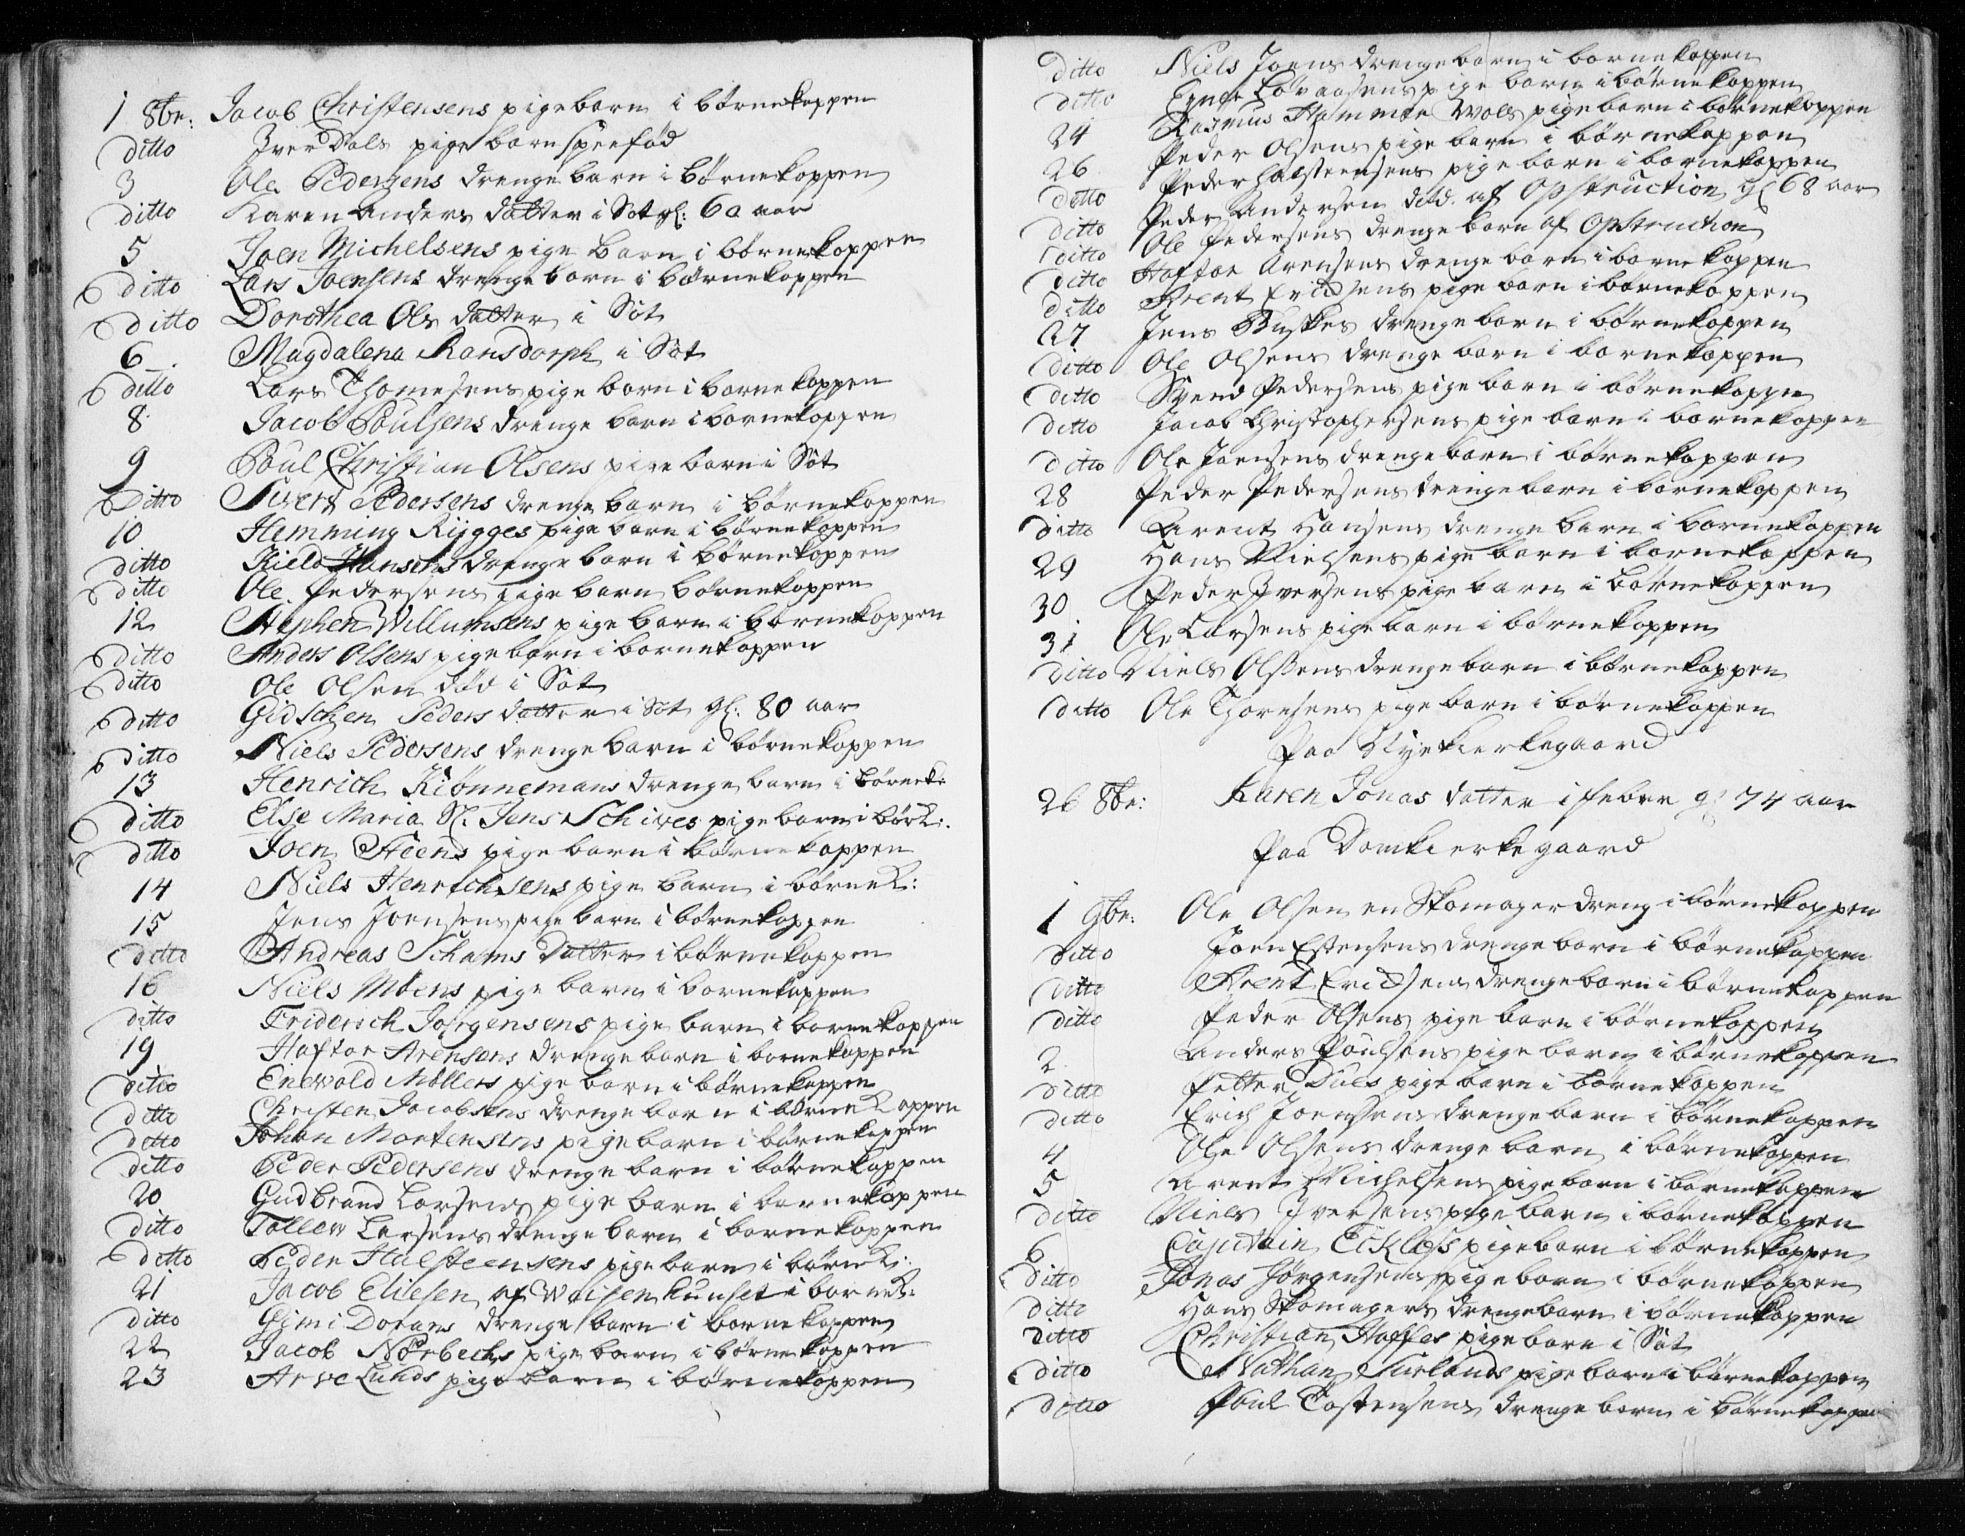 1 8br: Jacob Christensens pigebarn i børnekoppen
ditto Iver Dals pige barn speefød
3 Ole Pedersens drenge barn i børnekoppen
ditto Karen Anders datter i Sot gl: 60 aar
5 Joen Michelsens pige barn i børnekoppen
ditto Lars Joensens drenge barn i børnekoppen
ditto Dorothea Ols datter i Sot
6 Magdalena Ransdorph i Sot
ditto Lars Thomesens pige barn i børnekoppen
8 Jacob Poulsens drenge barn i børnekoppen
9 Poul Christian Olsens pige barn i Sot
Ditto Sivert Pedersens drenge barn i børnekoppen
10 Hemming Rygges pige barn i børnekoppen
ditto Kield Hansens drenge barn i børnekoppen
ditto Ole Pedersens pige barn børnekoppen
12 Stephen Willumsens pige barn i børnekoppen
ditto Anders Olsens pige barn i børnekoppen
ditto Ole Olsen død i Sot
ditto Gidschen Peders datter i Sot gl: 80 aar
ditto Niels Pedersens drenge barn i børnekoppen
13 Henrich Kiønnemans drenge barn i børnek:
ditto Else Maria Sl. Jens Schives pige barn i børk:
ditto Joen Steens pige barn i børnekoppen
14 Niels Henrichsens pige barn i børnek:
15 Jens Joensens pige barn i børnekoppen
ditto Andreas Schams datter i børnekoppen
16 Niels Moens pige barn i børnekoppen
ditto Friderich Jørgensens pige barn i børnekoppen
19 Haftor Arensens drenge barn i børnekoppen
ditto Enevold Møllers pige barn i børnekoppen
ditto Christen Jacobsens drenge barn i børnekoppen
ditto Johan Mortensens pige barn i børnekoppen
ditto Peder Pedersens drenge barn i børnekoppen
20 Gudbrand Larsens pige barn i børnekoppen
ditto Tollew Larsens drenge barn i børnekoppen
ditto Peder Halsteensens pige barn i børnek:
21 Jacob Eliesen af Waisenhuuset i børnek:
ditto Gimi Dorans drenge barn i børnekoppen
22 Jacob Nørbechs pige barn i børnekoppen
23 Arve Lunds pige barn i børnekoppen
ditto Niels Joens drenge barn i børnekoppen
ditto pige barn i børnekoppen
24 Rasmus Hammer Wols pige barn i børnekoppen
26 Peder Olsens pige barn i børnekoppen
ditto Peder Halsteensens pige barn i børnekoppen
ditto Peder Andersen død af Opstruction gl 68 aar
ditto Ole Pedersens drenge barn af Opstruction
ditto Haftor Arensens drenge barn i børnekoppen
ditto Arent Erichsens pige barn i børnekoppen
27 Jens Buskes drenge barn i børnekoppen
ditto Ole Olsens drenge barn i børnekoppen
ditto Svend Pedersens pige barn i børnekoppen
ditto Jacob Christophersens pige barn i børnekoppen
ditto Ole Joensens drenge barn i børnekoppen
28 Peder Pedersens drenge barn i børnekoppen
ditto Arent Hansens drenge barn i børnekoppen
29 Hans Nielsens pige barn i børnekoppen
30 Peder Iversens pige barn i børnekoppen
31 Ole Larsens pige barn i børnekoppen
ditto Niels Olsens drenge barn i børnekoppen
ditto Ole Thoresens pige barn i børnekoppen
Paa Nyekierkegaard
26 8br: Karen Jonas datter i feber gl 74 aar
Paa Domkierkegaard
1 9br: Ole Olsen en Skomagerdreng i børnekoppen
ditto Joen Estensens drenge barn i børnekoppen
ditto Arent Erichsens drenge barn i børnekoppen
ditto Peder Olsens pige barn i børnekoppen
2 Anders Poulsens pige barn i børnekoppen
ditto Petter Dues pige barn i børnekoppen
ditto Erich Joensens drenge barn i børnekoppen
4 Ole Olsens drenge barn i børnekoppen
5 Arent Michelsens pige barn i børnekoppen
ditto Niels Iversens pige barn i børnekoppen
6 Capitain Ecklefs pige barn i børnekoppen
ditto Jonas Jørgensens pige barn i børnekoppen
ditto Hans Skomagers drenge barn i børnekoppen
ditto Christian Hoffes pige barn i Sot
ditto Nathan Surlands pige barn i børnekoppen
ditto Poul Tostensens drenge barn i børnekoppen